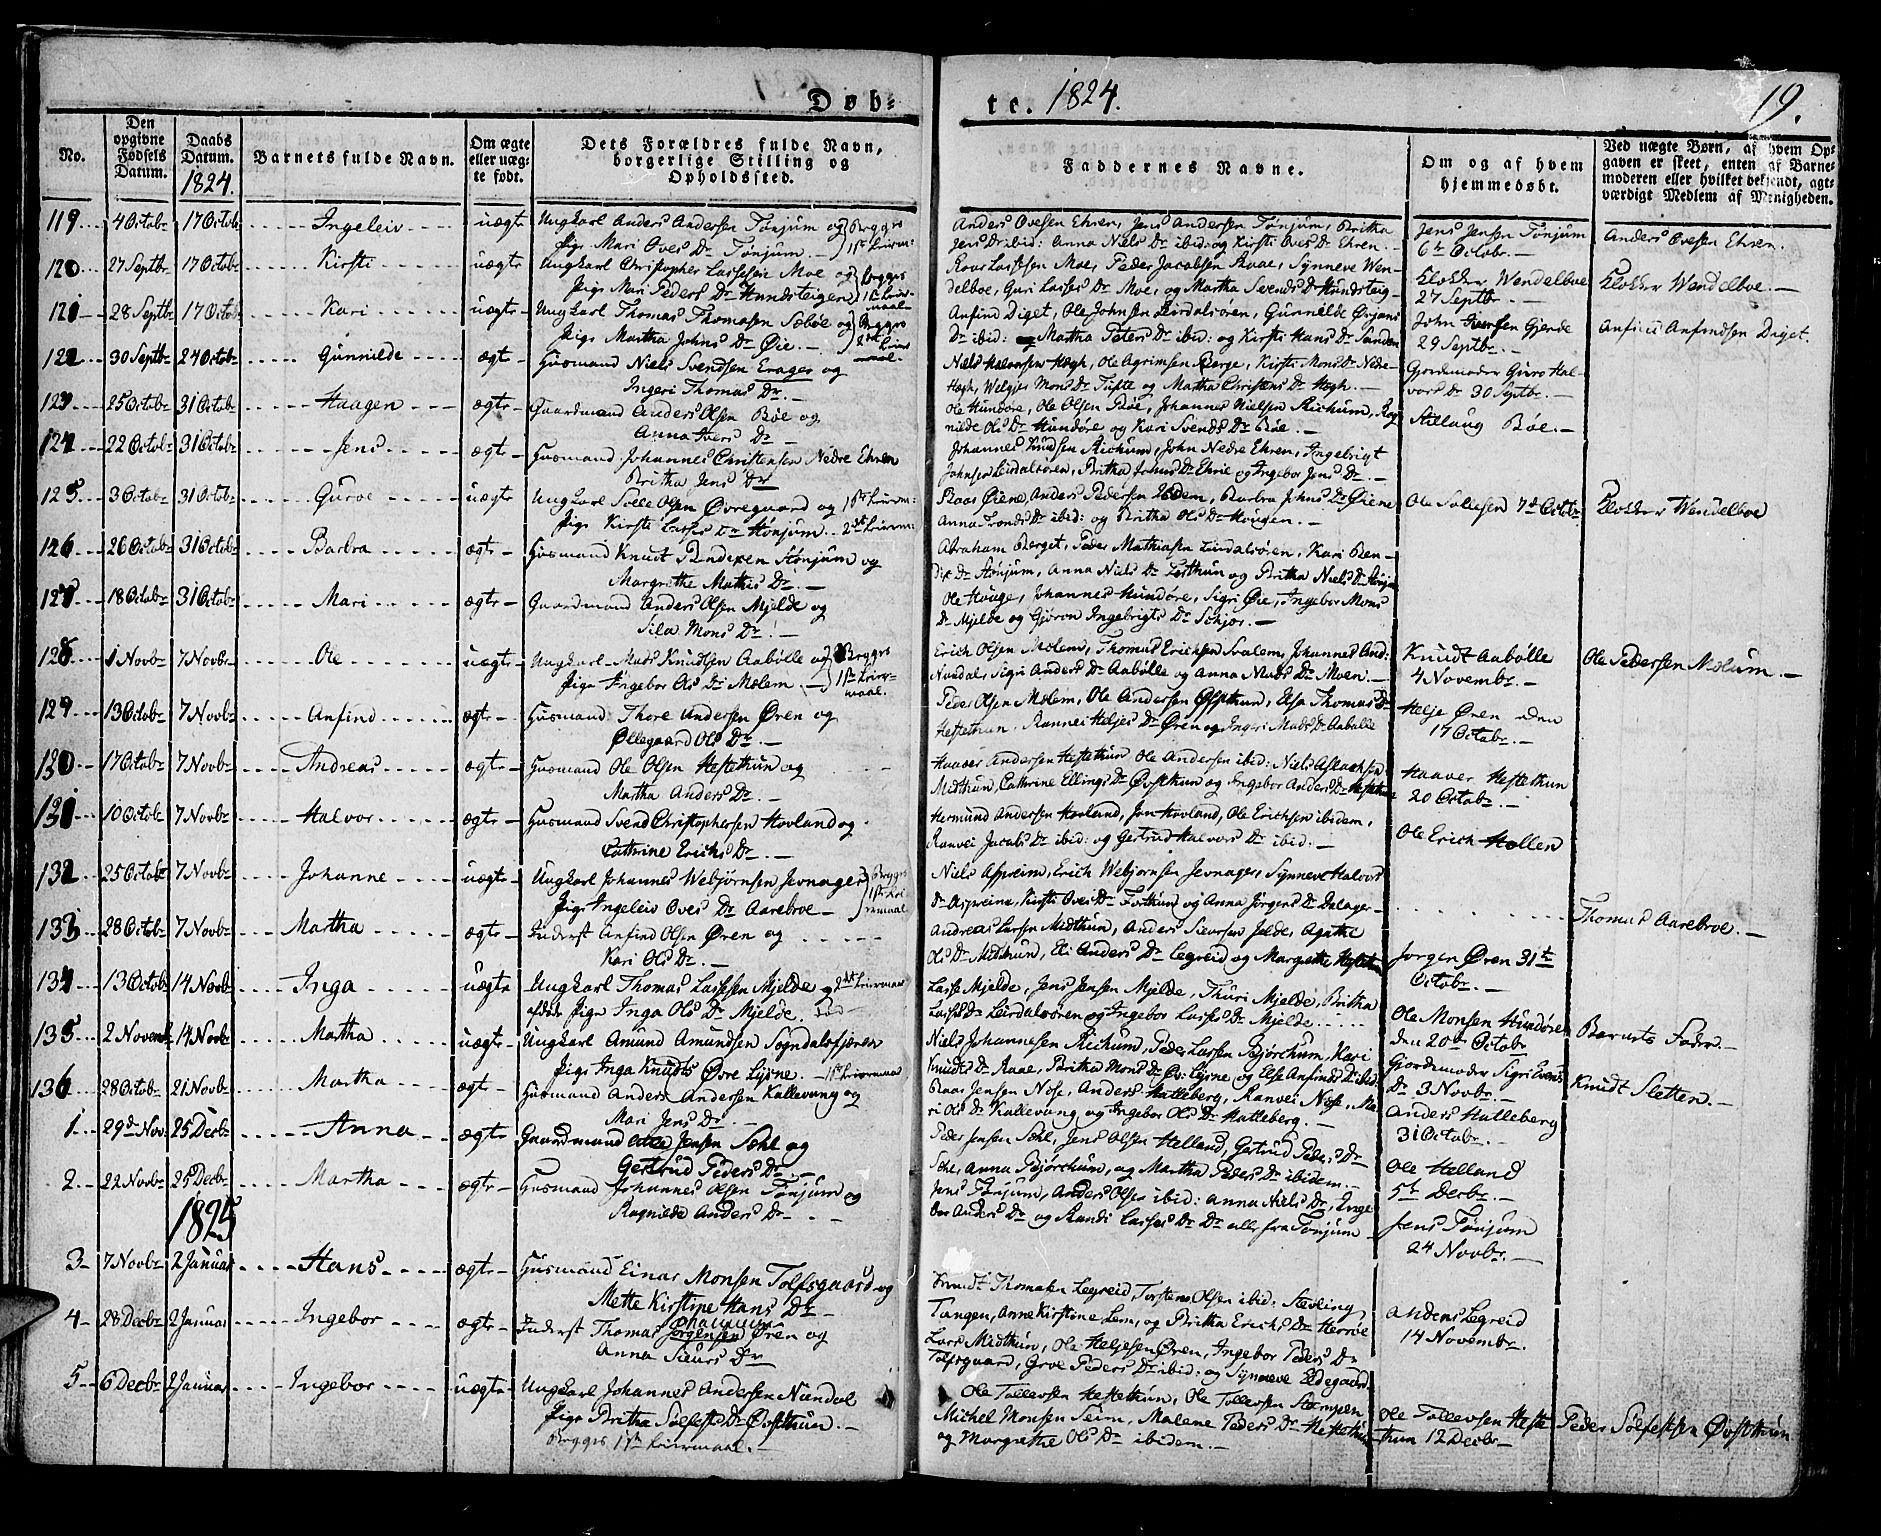 Døb-
te. 1824.
19.
No.
Den opgivne Fødsels Datum.
Daabs Datum. 1824.
Barnets fulde Navn.
Om ægte eller uægte født.
Dets Forældres fulde Navn, borgerlige Stilling og Opholdssted.
Faddernes Navne.
Om og af hvem hjemmedøbt.
Ved uægte Børn, af hvem Opgaven er skeet, enten af Barnemoderen eller hvilket bekjendt, agtværdigt Medlem af Menigheden.
119 4 Octobr 17 Octobr Ingeleiv uægte Ungkarl Anders Andersen Tønjum og Begges
Pige Mari Oves Dr Tønjum 1ste Leierm:
Anders Ovesen Ehren, Jens Andersen Tønjum, Britha
Jens Dr ibid: Anna Niels Dr ibid: og Kirsti Oves Dr Ehren
Jens Jensen Tønjum
6te Octobr
Anders Ovesen Ehren
120 27 Septbr 17 Octobr Kirsti uægte Ungkarl Christopher Lassesen Moe og Begges
Pige Mari Peders Dr Hundsteigen 1ste Leiermaal
Roar Lassesen Moe, Peder Jacobsen Raae, Synneve Wendelboe, Guri Lasses Dr Moe, og Martha Svends Dr Hundsteig
Klokker Wendelboe
27 Septbr
Klokker Wendelboe
121 28 Septbr 17 Octobr Kari uægte Ungkarl Thomas Thomasen Sæbøe og Begges
Pige Martha Johns Dr Øie 2det Leiermaal
Anfind Diget, Ole Johnsen Leirdalsøren, Gunnilde Ørjans
Dr ibid: Martha Peters Dr ibid: og Kirsti Hans Dr Sanden
John Iversen Gjerde
29 Septbr
Anfind Anfindsen Diget
122 30 Septbr 24 Octobr Gunnilde ægte Husmand Niels Svendsen Erager og
Ingeri Thomas Dr
Niels Halvorsen Hægh, Ole Agrimsen Berge, Kirsti Mons Dr Nedre
Hægh, Welgjer Mons Dr Tufte og Martha Christens Dr Hegh
Gjordemoder Guro Halvors Dr 30 Septbr
123 25 Octobr 31 Octobr Haagen ægte Gaardmand Anders Olsen Bøe og
Anna Ivers Dr
Ole Hundøre, Ole Olsen Bøe, Johannes Nielsen Richum, Ragnilde Ols Dr Hundøre og Kari Svends Dr Bøe
Aslaug Bøe
124 22 Octobr 31 Octobr Jens ægte Husmand Johannes Christensen Nedre Ehren
Britha Jens Dr
Johannes Knudsen Richum, John Nedre Ehren, Ingebrigt
Johnsen Leirdalsøren, Britha Johns Dr Ehre og Ingebor Jens Dr
125 3 Octobr 31 Octobr Guroe uægte Ungkarl Solle Olsen Øvregaard og 1ste Leierm:
Pige Kirsti Lasses Dr Hønjum 2det Leierm:
Raas Øiene, Anders Pedersen Ødem, Barbra Johns Dr Øiene
Anna Tronds Dr ibid: og Britha Ols Dr Hougen
Ole Sollesen 7d Octobr
Klokker Wendelboe
126 26 Octobr 31 Octobr Barbra ægte Husmand Knut Bendixen Stønjum og
Margrethe Mathis Dr
Abraham Berget, Peder Mathiasen Leirdalsøren, Kari Bendix Dr Stønjum, Anna Niels Dr Loethun og Britha Niels Dr Stønjum
127 18 Octobr 31 Octobr Mari ægte Gaardmand Anders Olsen Mjelde og
Sila Mons Dr
Ole Houge, Johannes Hundøre, Sigri Øie, Ingebor Mons
Dr Mjelde og Gjøron Ingebrigts Dr Schjer
128 1 Novbr 7 Novbr Ole uægte Ungkarl Mads Knudsen Aabølle og Begges
Pige Ingebor Ols Dr Molem 1ste Leiermaal
Erich Olsen Molem, Thomas Erichsen Svalem, Johannes And:
Nundal, Sigri Anders Dr Aabølle og Anna Mads Dr Moen
Knudt Aabølle
4 Novembr
Ole Pedersen Molum
129 13 Octobr 7 Novbr Anfind ægte Husmand Thore Andersen Øren og
Øllegaard Ols Dr
Peder Olsen Molem, Ole Andersen Øfsthun, Elsa Thomas Dr
Hestethun, Rannei Heljes Dr Øren og Ingeri Mads Dr Aabølle
Helje Øren den
17 Octobr
130 17 Octobr 7 Novbr Andreas ægte Husmand Ole Olsen Hestethun og
Martha Anders Dr
Haaver Andersen Hestethun, Ole Andersen ibid: Niels Aslachsen
Midthun, Cathrine Ellings Dr Øvsthun og Ingebor Anders Dr Hestethun
Haaver Hestethun
20 Octobr
131 10 Octobr 7 Novbr Halvor ægte Husmand Svend Christophersen Hovland og
Cathrine Erichs Dr
Hermund Andersen Hovland, Jon Hovland, Ole Erichsen ibidem,
Ranvei Jacobs Dr ibid: og Gertrud Halvors Dr ibid:
Ole Erich Hollen
132 25 Octobr 7 Novbr Johanne uægte Ungkarl Johannes Webjørnsen Jevnager Begges
Pige Ingeleiv Oves Dr Aarebroe 1ste Leiermaal
Niels Aspreim, Erich Webjornsen Jevnager, Synneve Halvors
Dr Aspreine, Kirsti Oves Dr Forthun og Anna Jørgens Dr Dalager
Thomas Aarebroe
133 28 Octobr 7 Novbr Martha ægte Inderst Anfind Olsen Øren og
Kari Ols Dr
Andreas Larsen Midthun, Anders Siversen Jelde, Agathe
Ols Dr Midthun, Eli Anders Dr Legreid og Margrethe Hestethun
Jørgen Øren 31te
Octobr
134 13 Octobr 14 Novbr Inga uægte Ungkarl Thomas Lassesen Mjelde og 2det Leiermaal
afdøde Pige Inga Ols Dr Mjelde
Lasse Mjelde, Jens Jensen Mjelde, Thuri Mjelde, Britha
Lasses Dr Leirdalsøren og Ingebor Lasses Dr Mjelde
Ole Monsen Hundøre
den 20de Octobr
Barnets Fader
135 2 Novembr 14 Novbr Martha uægte Ungkarl Amund Amundsen Sogndalsfjæren
Pige Inga Knudts Øvre Lysne 1ste Leiermaal
Niels Johannesen Richum, Peder Lassen Bjørchum, Kari
Knudts Dr Raae, Britha Mons Dr Øv: Lysne og Else Anfinds Dr ibid:
Gjordemoder Sigri Evens
Dr 3 Novbr
Knudt Sletten
136 28 Octobr 21 Novbr Martha ægte Husmand Anders Andersen Kallevang og
Mari Jens Dr
Baar Jensen Nose, Anders Hatleberg, Ranvei Nose, Mari Ols Dr Kallevang, og Ingebor Ols Dr Hatleberg
Anders Hatleberg
31 Octobr
1 29de Nov: 25 Decbr Anna ægte Gaardmand Jensen Sæhl og
Gertrud Peders Dr
Peder Jensen Sæhl, Jens Olsen Helland, Gertrud Peders Dr
Sæhl, Anna Bjørchum, og Martha Peders Dr ibidem
Ole Helland
5te Decbr
2 22 Novbr 25 Decbr Martha ægte Husmand Johannes Olsen Tønjum og
Ragnilde Anders Dr
Jens Tønjum, Anders Olsen ibid: Anna Niels Dr, Ingebor Anders Dr og Randi Lasses Dr Dr alle fra Tønjum
Jens Tønjum
24 Novbr
1825
3 7 Novbr 2 Januar Hans ægte Husmand Einar Monsen Tolfsgaard og
Mette Kirstine Hans Dr
Knudt Thomasen Legreid, Torsten Olsen ibid:
Tangen, Anne Kirstine Lem, og Britha Erichs Dr Herrøe
Anders Legreid
14 Novembr
4 28 Decbr 2 Januar Ingebor ægte Inderst Thomas Jørgensen Øren og
Anna Sieurs Dr
Lars Midthun, Ole Heljesen Øren, Ingebor Peders Dr
Tolfsgaard, Groe Peders Dr ibid: og Synneve Eldegaard
5 6 Decbr 2 Januar Ingebor uægte Ungkarl Johannes Andersen Nundal
Pige Britha Sølfests Dr Øvsthun
Begges 1ste Leiermaal
Ole Tollevsen Hestethun, Ole Tollevsen Stempen
Michel Monsen Seim, Malene Peders Dr Hestethun
og Margrethe Ols Dr ibidem
Ole Tollevsen Hestethun 12 Decbr
Peder Sølfestsen Øvsthun